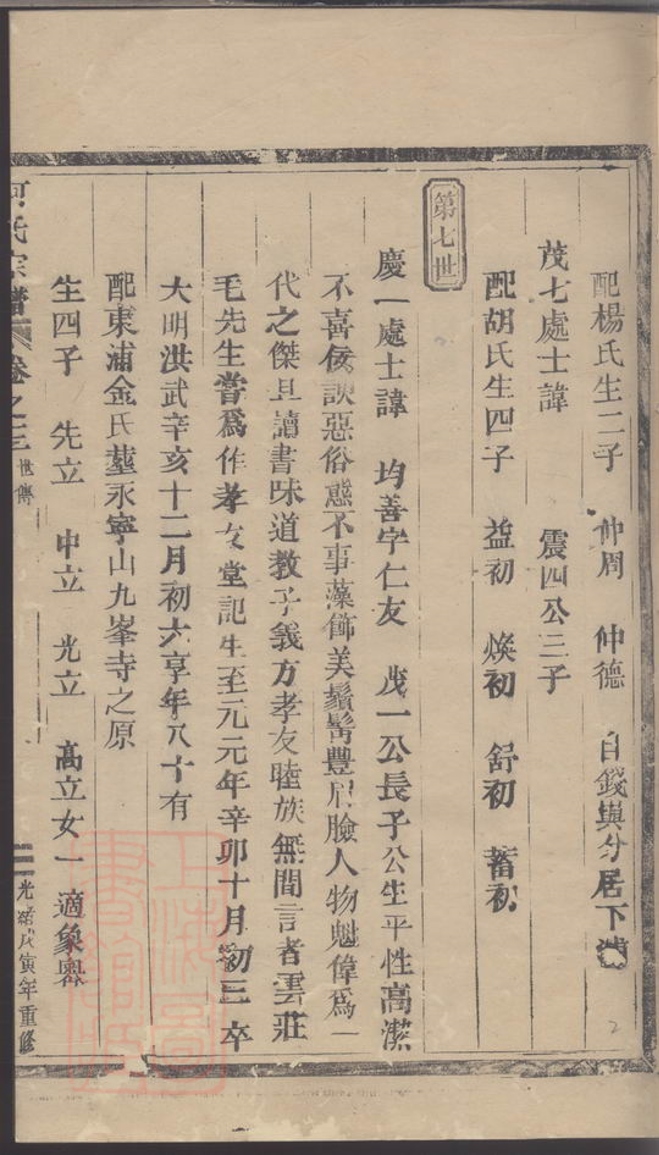 配楊氏生二子　仲周　仲德　自錢㙛分居下
茂七處士諱　震四公三子
配胡氏生四子　益初　煥初　舒初　蓄初
第七世
慶一處士諱　均善字仁友　茂一公長子公生平性高潔
不喜佞諛惡俗態不事藻飾美鬚髯豐眉臉人物魁偉爲一
代之傑且讀書味道教子義方孝友睦族無間言者雲莊
毛先生嘗爲作孝友堂記生至元元年辛卯十月初三卒
大明洪武辛亥十二月初六享年八十有
配東浦金氏墓永寧山九峯寺之原
生四子　先立　中立　光立　高立女一適象嶴
河氏宗譜　卷之三　世傳　二　光緒戊寅年重修
上海圖書館藏
2